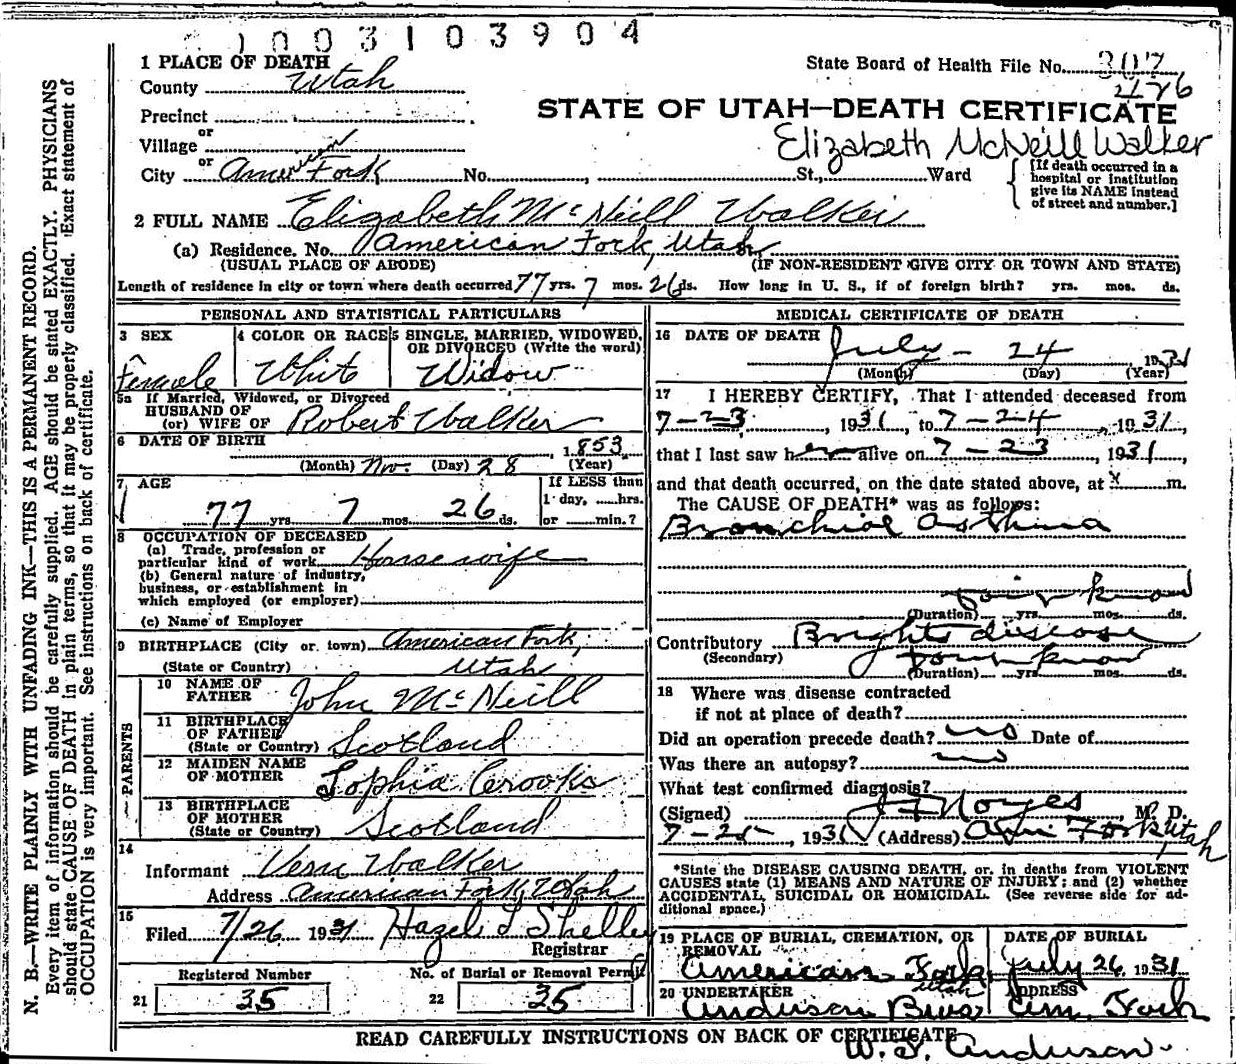 1003103904
1 PLACE OF DEATH
County Utah
Precinct
or
Village
or
City American Fork No. , St., Ward
State Board of Health File No. 307
476
STATE OF UTAH—DEATH CERTIFICATE
Elizabeth McNeill Walker
[If death occurred in a
hospital or institution
give its NAME instead
of street and number.]
2 FULL NAME Elizabeth McNeill Walker
(a) Residence. No. American Fork, Utah
(USUAL PLACE OF ABODE) (IF NON-RESIDENT GIVE CITY OR TOWN AND STATE)
Length of residence in city or town where death occurred 77 yrs. 7 mos. 26 ds. How long in U. S., if of foreign birth? yrs. mos. ds.
PERSONAL AND STATISTICAL PARTICULARS
3 SEX
Female
4 COLOR OR RACE
White
5 SINGLE, MARRIED, WIDOWED,
OR DIVORCED (Write the word)
Widow
5a If Married, Widowed, or Divorced
HUSBAND OF
(or) WIFE OF Robert Walker
6 DATE OF BIRTH 1853
(Month) Nov. (Day) 28 (Year)
7 AGE
77 yrs. 7 mos. 26 ds.
If LESS than
1 day, hrs.
or min.?
8 OCCUPATION OF DECEASED
(a) Trade, profession or
particular kind of work Housewife
(b) General nature of industry,
business, or establishment in
which employed (or employer)
(c) Name of Employer
9 BIRTHPLACE (City or town) American Fork,
(State or Country) Utah
PARENTS
10 NAME OF
FATHER John McNeill
11 BIRTHPLACE
OF FATHER
(State or Country) Scotland
12 MAIDEN NAME
OF MOTHER Sophia Crooks
13 BIRTHPLACE
OF MOTHER
(State or Country) Scotland
14
Informant Vern Walker
Address American Fork, Utah
15
Filed 7/26 1931 Hazel L Shelley
Registrar
Registered Number
21 35
No. of Burial or Removal Permit
22 35
MEDICAL CERTIFICATE OF DEATH
16 DATE OF DEATH July - 24 1931
(Month) (Day) (Year)
17 I HEREBY CERTIFY, That I attended deceased from
7-23, 1931, to 7-24, 1931,
that I last saw her alive on 7-23, 1931,
and that death occurred, on the date stated above, at x m.
The CAUSE OF DEATH* was as follows:
Bronchial asthma
don't know
(Duration) yrs. mos. ds.
Contributory Brights disease
(Secondary) don't know
(Duration) yrs. mos. ds.
18 Where was disease contracted
if not at place of death?
Did an operation precede death? no Date of
Was there an autopsy? no
What test confirmed diagnosis?
(Signed) J F Noyes M. D.
7-25, 1931 (Address) Am. Fork, Utah
*State the DISEASE CAUSING DEATH, or, in deaths from VIOLENT
CAUSES state (1) MEANS AND NATURE OF INJURY; and (2) whether
ACCIDENTAL, SUICIDAL OR HOMICIDAL. (See reverse side for ad-
ditional space.)
19 PLACE OF BURIAL, CREMATION, OR
REMOVAL
American Fork, Utah
DATE OF BURIAL
July 26, 1931
20 UNDERTAKER
Anderson Bros
ADDRESS
Am. Fork
READ CAREFULLY INSTRUCTIONS ON BACK OF CERTIFICATE
W. S. Anderson
N. B.—WRITE PLAINLY WITH UNFADING INK—THIS IS A PERMANENT RECORD.
Every item of information should be carefully supplied. AGE should be stated EXACTLY. PHYSICIANS
should state CAUSE OF DEATH in plain terms, so that it may be properly classified. Exact statement of
OCCUPATION is very important. See instructions on back of certificate.